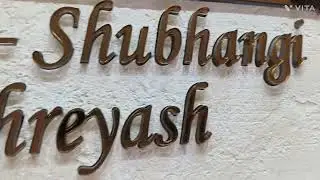 VITA
- Shubhangi
hreyash